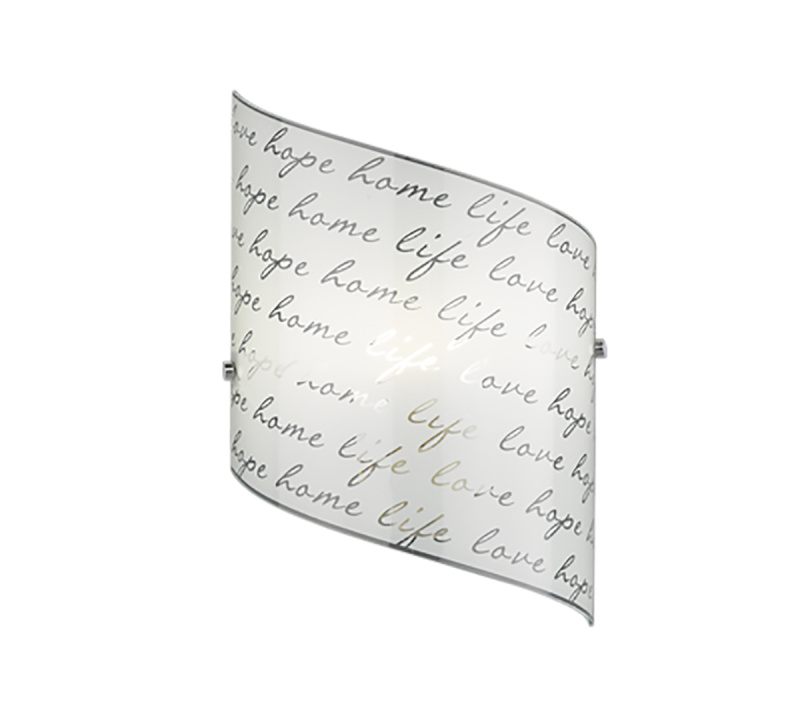 love hope home life love
hope home life love hop
ve hope home life love
ope home life love hope
e hope home life love hop
pe home life love hope h
hope home life love hope